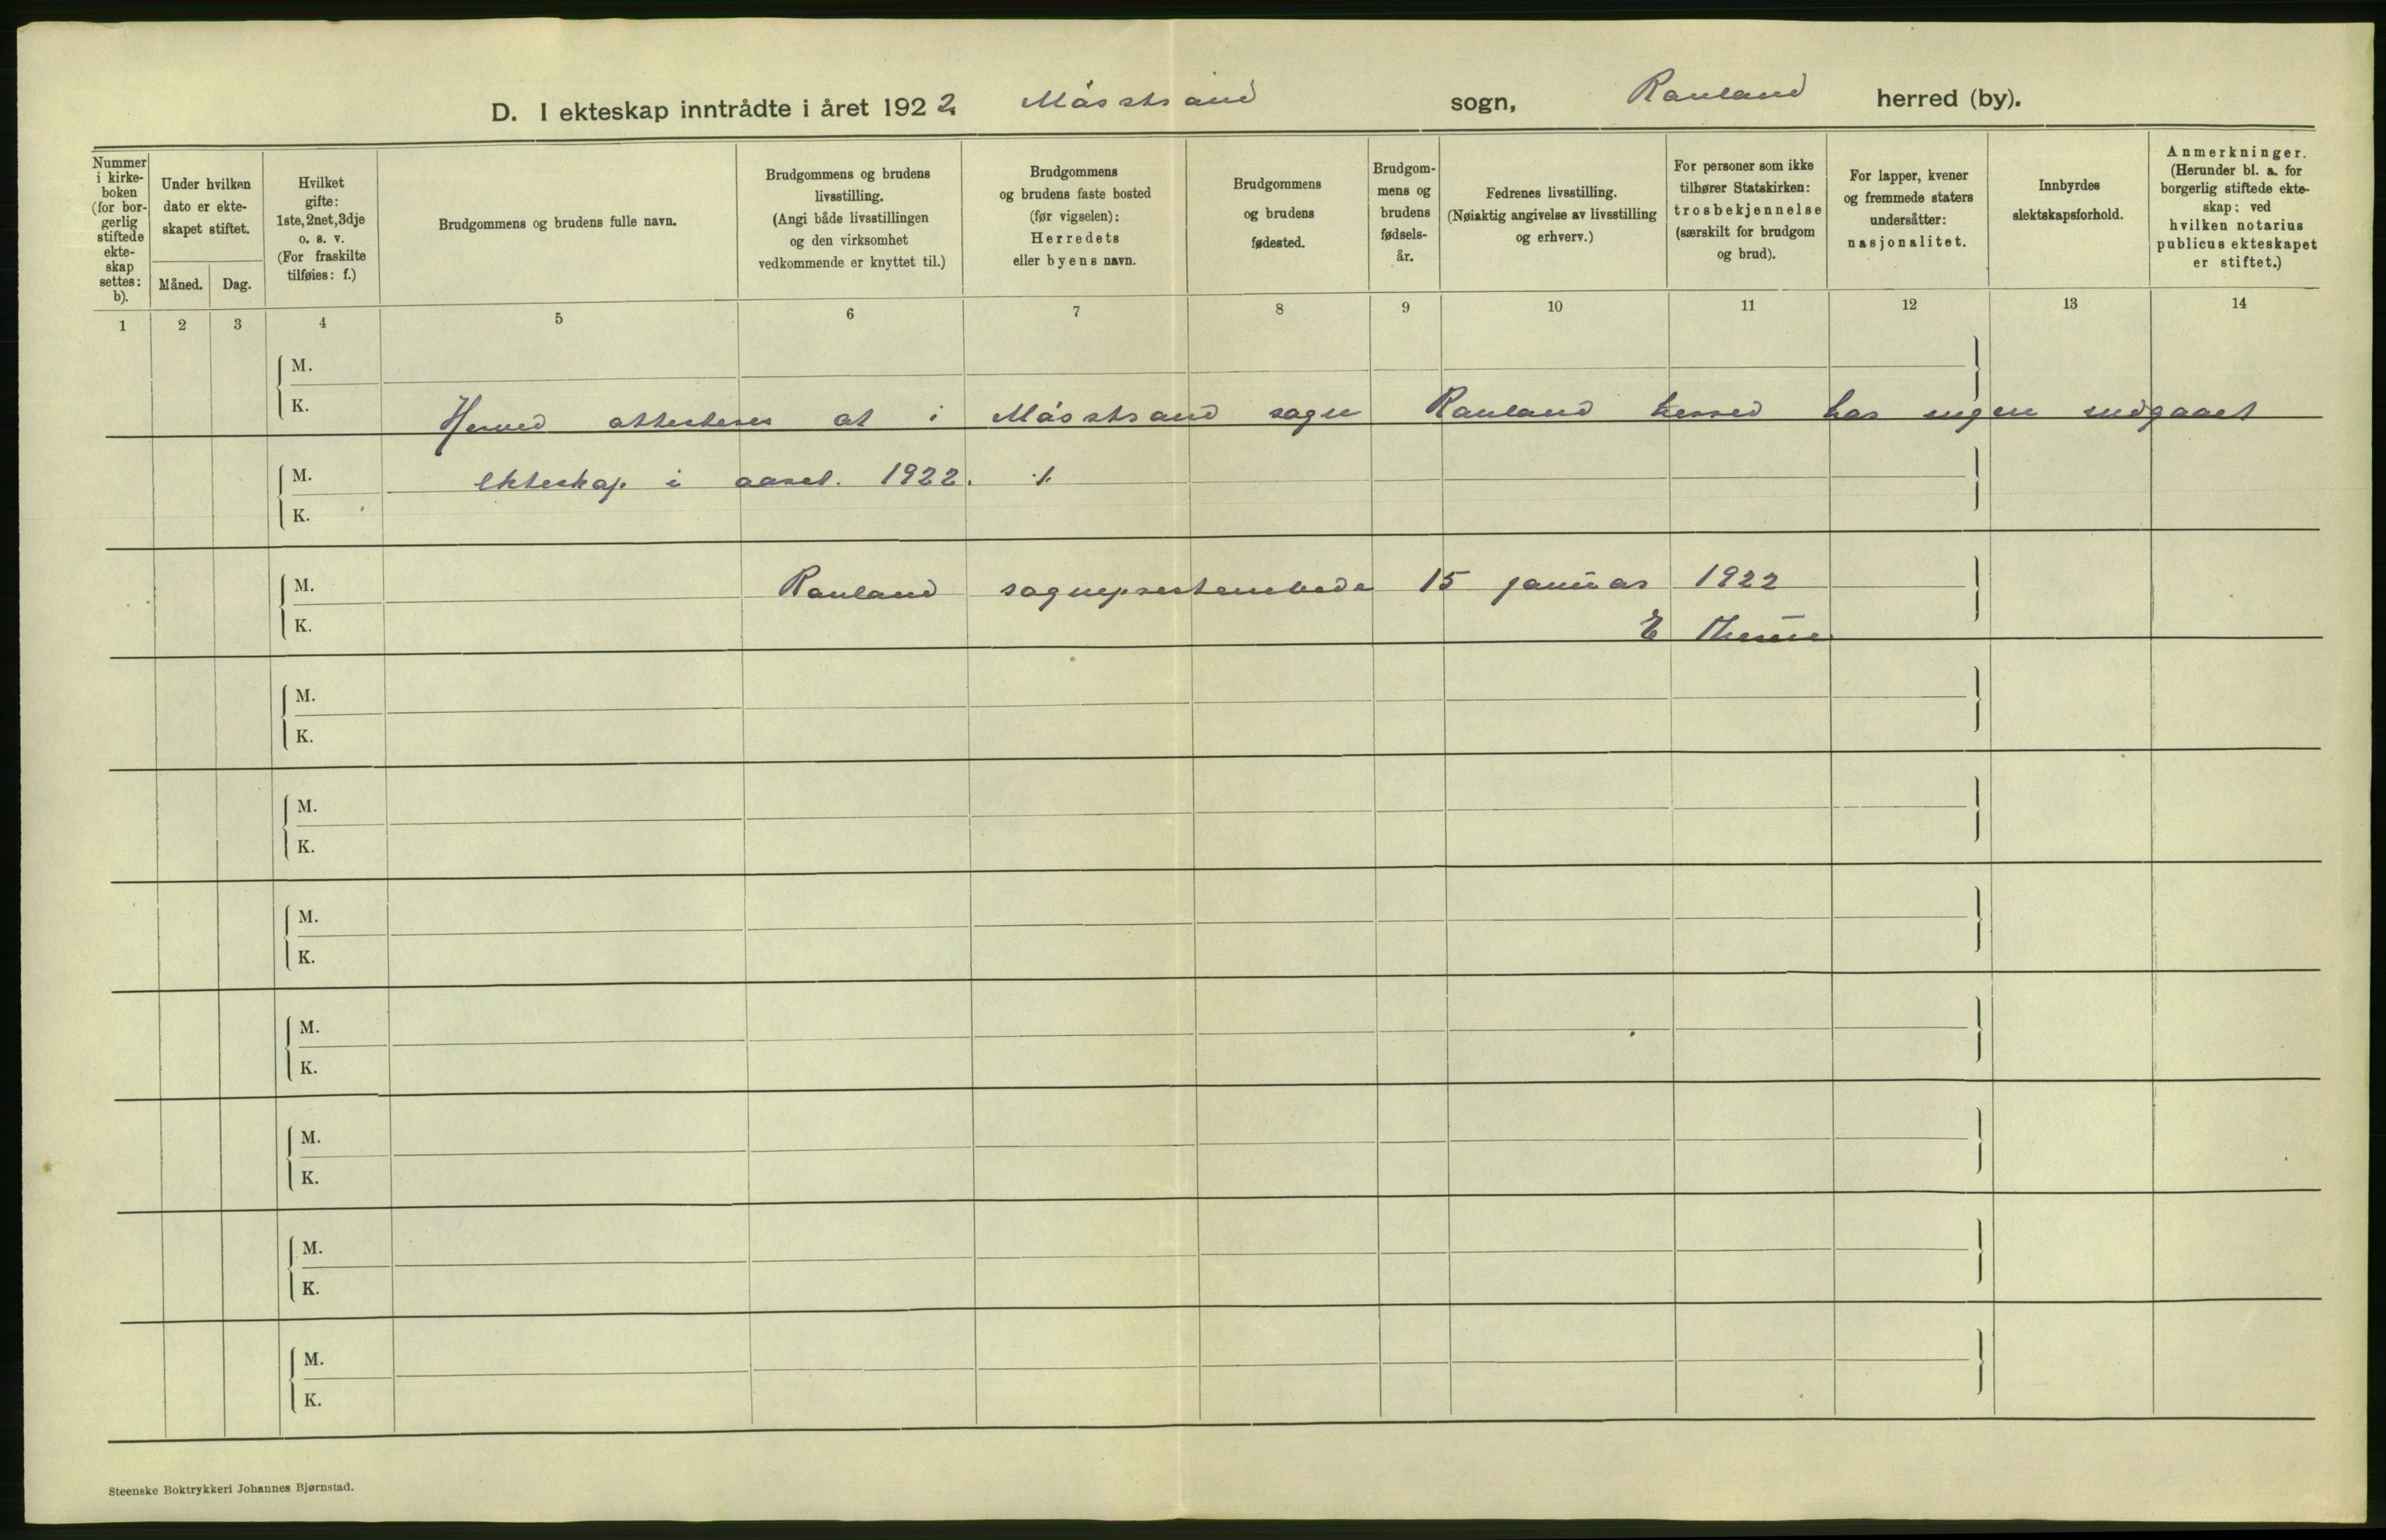 D. I ekteskap inntrådte i året 1922 Måsstrand sogn, Rauland herred (by).
Nummer i kirke- boken (for bor- gerlig stiftede ekte- skap settes: b).
Under hvilken dato er ekte- skapet stiftet.
Måned. Dag.
Hvilket gifte: 1ste, 2net, 3dje o. s. v. (For fraskilte tilføies: f.)
Brudgommens og brudens fulle navn.
Brudgommens og brudens livsstilling. (Angi både livsstillingen og den virksomhet vedkommende er knyttet til.)
Brudgommens og brudens faste bosted (før vigselen): Herredets eller byens navn.
Brudgommens og brudens fødested.
Brudgom- mens og brudens fødsels- år.
Fedrenes livsstilling. (Nøiaktig angivelse av livsstilling og erhverv.)
For personer som ikke tilhører Statskirken: trosbekjennelse (særskilt for brudgom og brud).
For lapper, kvener og fremmede staters undersåtter: nasjonalitet.
Innbyrdes slektskapsforhold.
Anmerkninger. (Herunder bl. a. for borgerlig stiftede ekte- skap: ved hvilken notarius publicus ekteskapet er stiftet.)
1 2 3 4 5 6 7 8 9 10 11 12 13 14
M.
K.
Herved attesteres at i Måsstrand sogn Rauland herred har ingen indgaaet
M. ekteskap i aaret. 1922. ./.
K.
M. Rauland sogneprestembede 15 januar 1922
K. E
M.
K.
M.
K.
M.
K.
M.
K.
M.
K.
M.
K.
M.
K.
Steenske Boktrykkeri Johannes Bjørnstad.